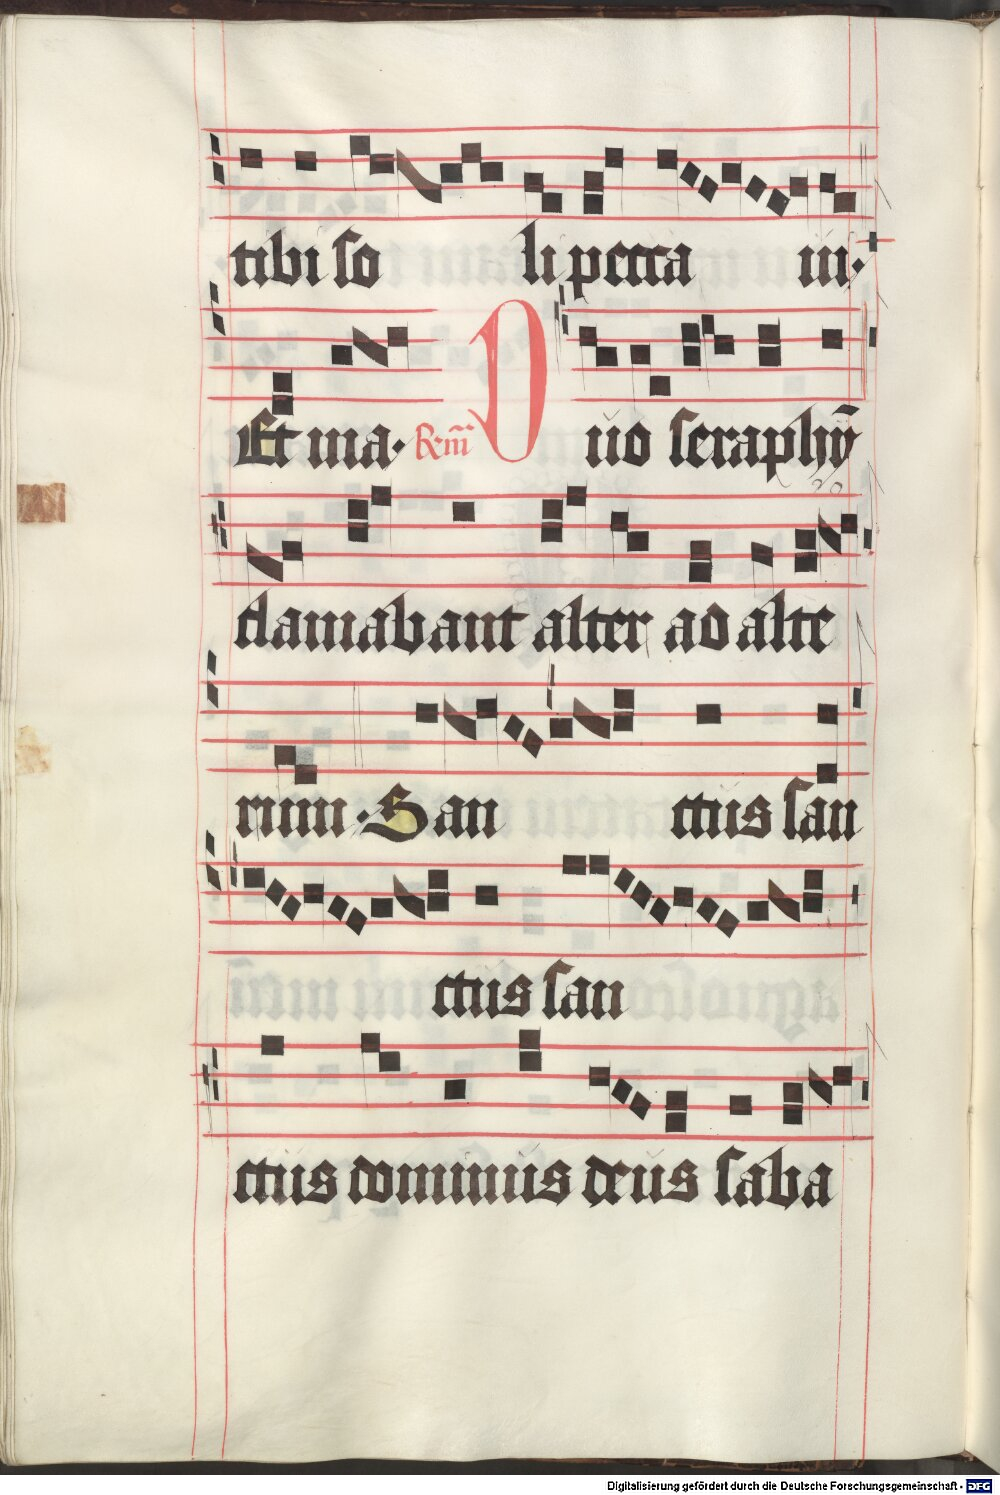 tibi so li pecca ui.
Et ma. Rm̃ Duo seraphỹ
clamabant alter ad alte
rum. San ctus san
ctus san
ctus dominus deus saba
Digitalisierung gefördert durch die Deutsche Forschungsgemeinschaft - DFG